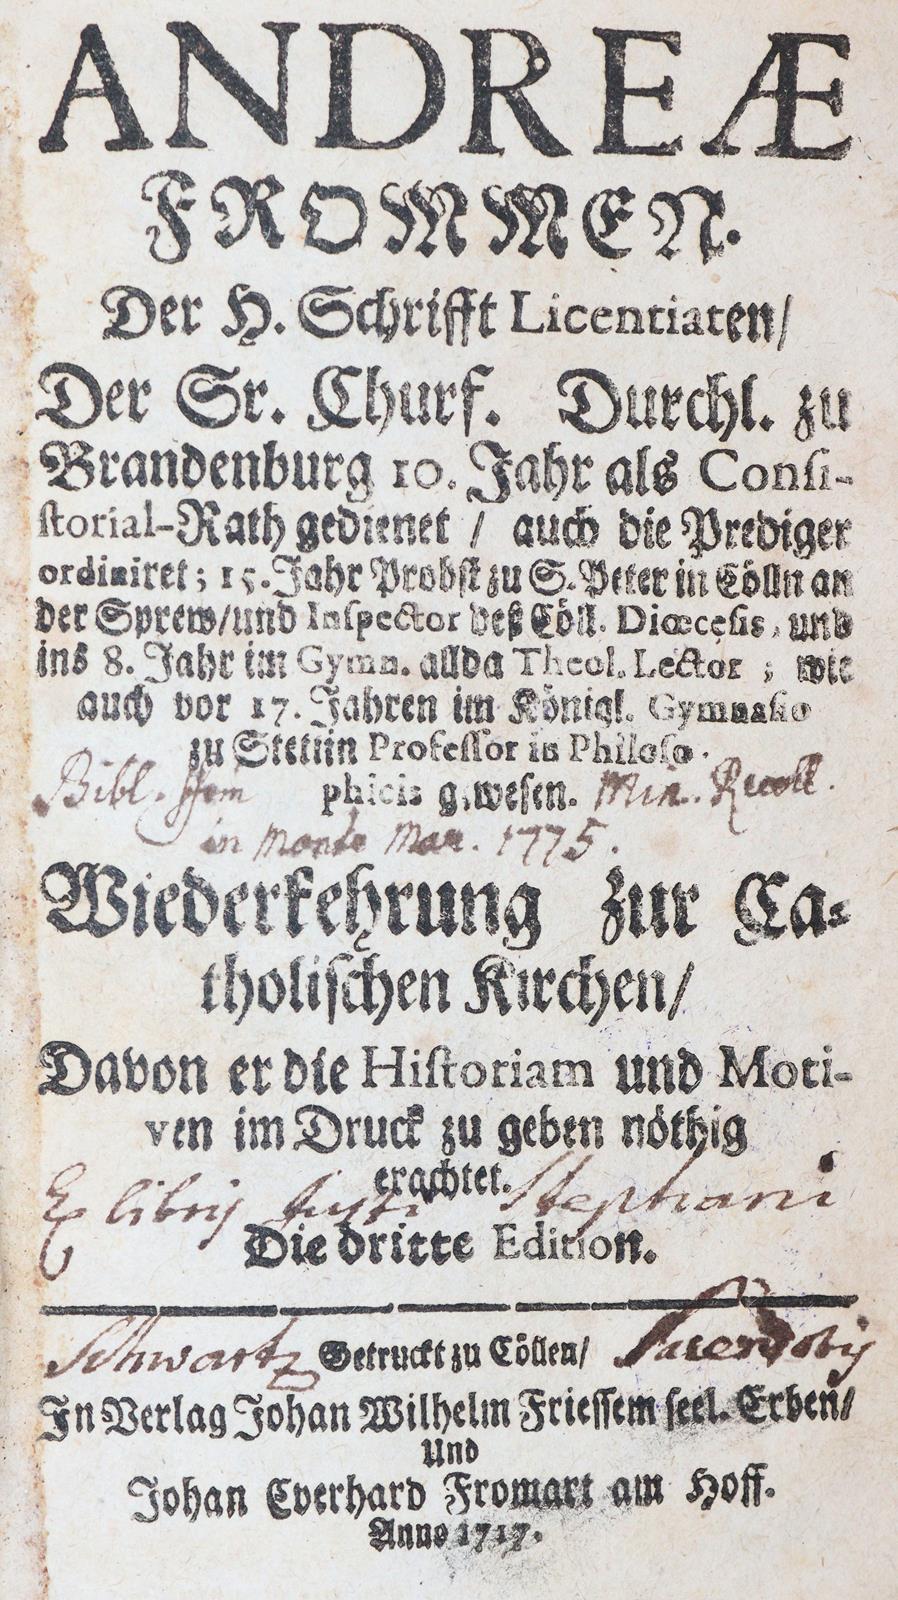 ANDREÆ
FROMMEN.
Der H. Schrifft Licentiaten/
Der Sr. Churf. Durchl. zu
Brandenburg 10. Jahr als Consi-
storial-Rath gedienet / auch die Prediger
ordiniret; 15. Jahr Probst zu S. Peter in Cölln an
der Sprew/und Inspector deß Cöll. Diœcesis, und
ins 8. Jahr im Gymn. allda Theol. Lector ; wie
auch vor 17. Jahren im Königl. Gymnasio
zu Stettin Professor in Philoso-
Bibl. phicis gewesen. Min. Recoll.
in monte Mar. 1775.
Wiederkehrung zur Ca-
tholischen Kirchen/
Davon er die Historiam und Moti-
ven im Druck zu geben nöthig
erachtet.
Ex libris Stephani
Die dritte Edition.
Schwartz Getruckt zu Cöllen/ Sacerdotis
In Verlag Johan Wilhelm Friessem seel. Erben/
Und
Johan Everhard Fromart am Hoff.
Anno 1717.